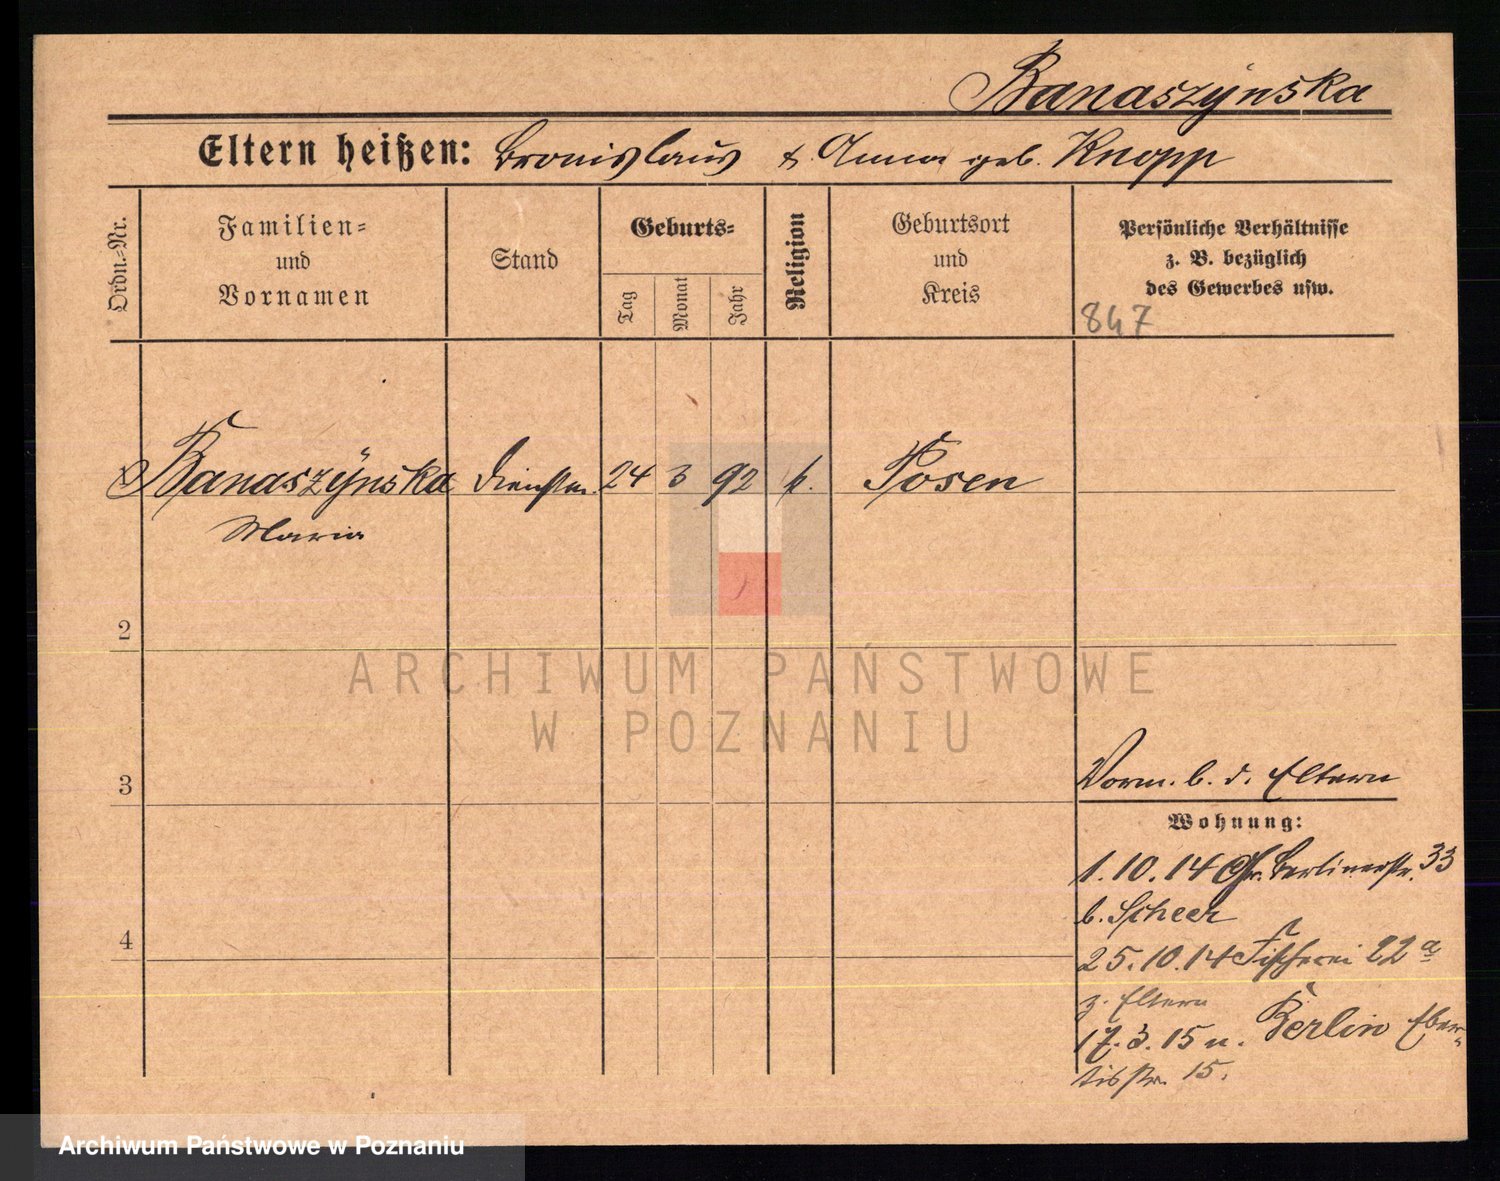 Banaszÿnska
Eltern heißen: Bronislaus & Anna geb. Knopp
Ordn.=Nr.
Familien=
und
Vornamen
Stand
Geburts=
Tag
Monat
Jahr
Religion
Geburtsort
und
Kreis
Persönliche Verhältnisse
z. B. bezüglich
des Gewerbes usw.
847
Banaszÿnska Dienstm. 24 3 92 k. Posen
Maria
2
3
4
ARCHIWUM PAŃSTWOWE
W POZNANIU
Vorm. b. d. Eltern
Wohnung:
1.10.14 Gr. Berlinerstr. 33
b. Scheer
25.10.14 Fischerei 22a
z. Eltern
17.3.15 n. Berlin
str. 15.
Archiwum Państwowe w Poznaniu